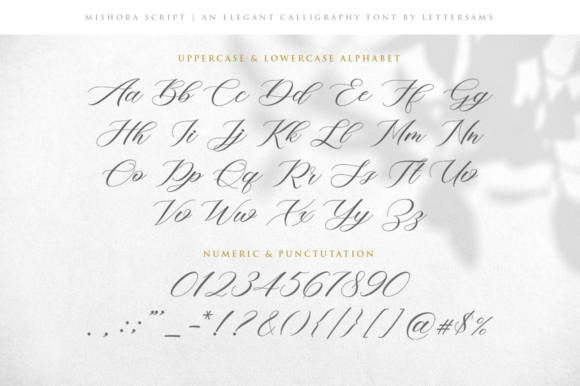 MISHORA SCRIPT | AN ELEGANT CALLIGRAPHY FONT BY LETTERSAMS
UPPERCASE & LOWERCASE ALPHABET
Aa Bb Cc Dd Ee Ff Gg
Hh Ii Jj Kk Ll Mm Nn
Oo Pp Qq Rr Ss Tt Uu
Vv Ww Xx Yy Zz
NUMERIC & PUNCTUTATION
01234567890
. , :; ’” _ -*!?&(){|}[]@#$%